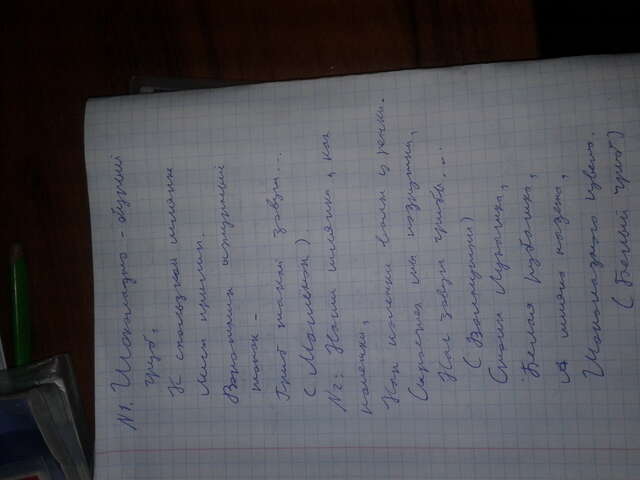 №1. Шоколадно-бурый
гриб,
К скользкой шляпке
Лист прилип.
Воротник ажурный
тонок -
Гриб такой зовут...
(Масленок).
№2: Наши шляпки, как
колечки,
Как колечки волн у речки.
мы подружки,
Нас зовут грибы...
(Волнушки)
Стоит Лукашка,
Белая рубашка,
А шляпа надета,
Шоколадного цвета.
(Белый гриб)